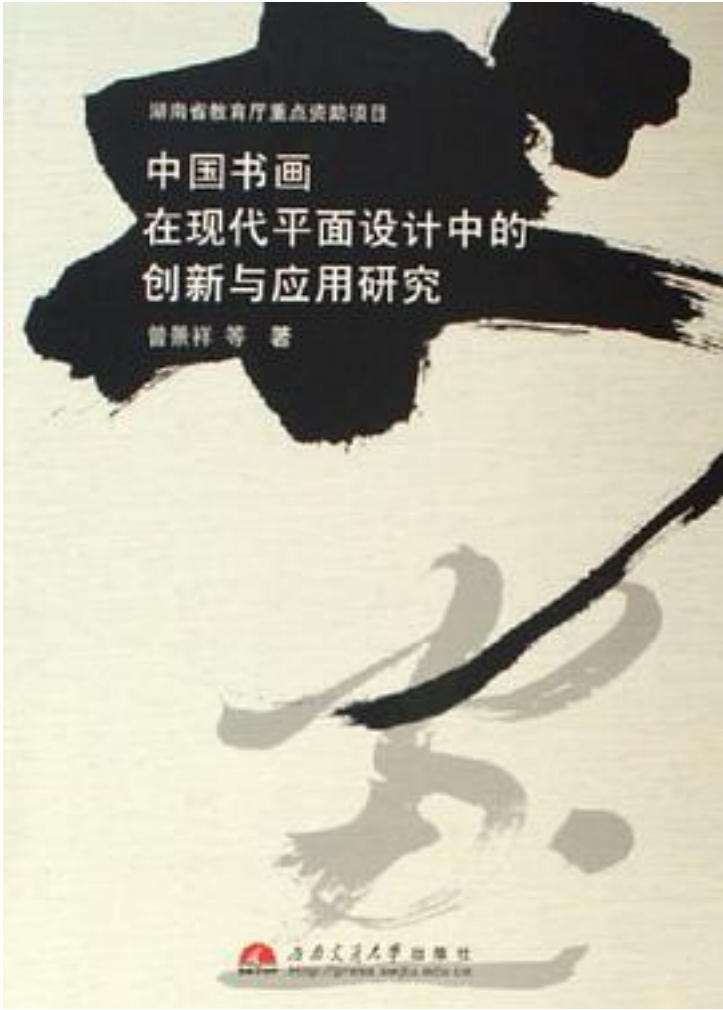 湖南省教育厅重点资助项目
中国书画
在现代平面设计中的
创新与应用研究
曾景祥 等 著
西南交通大学出版社
http://press.swjtu.edu.cn